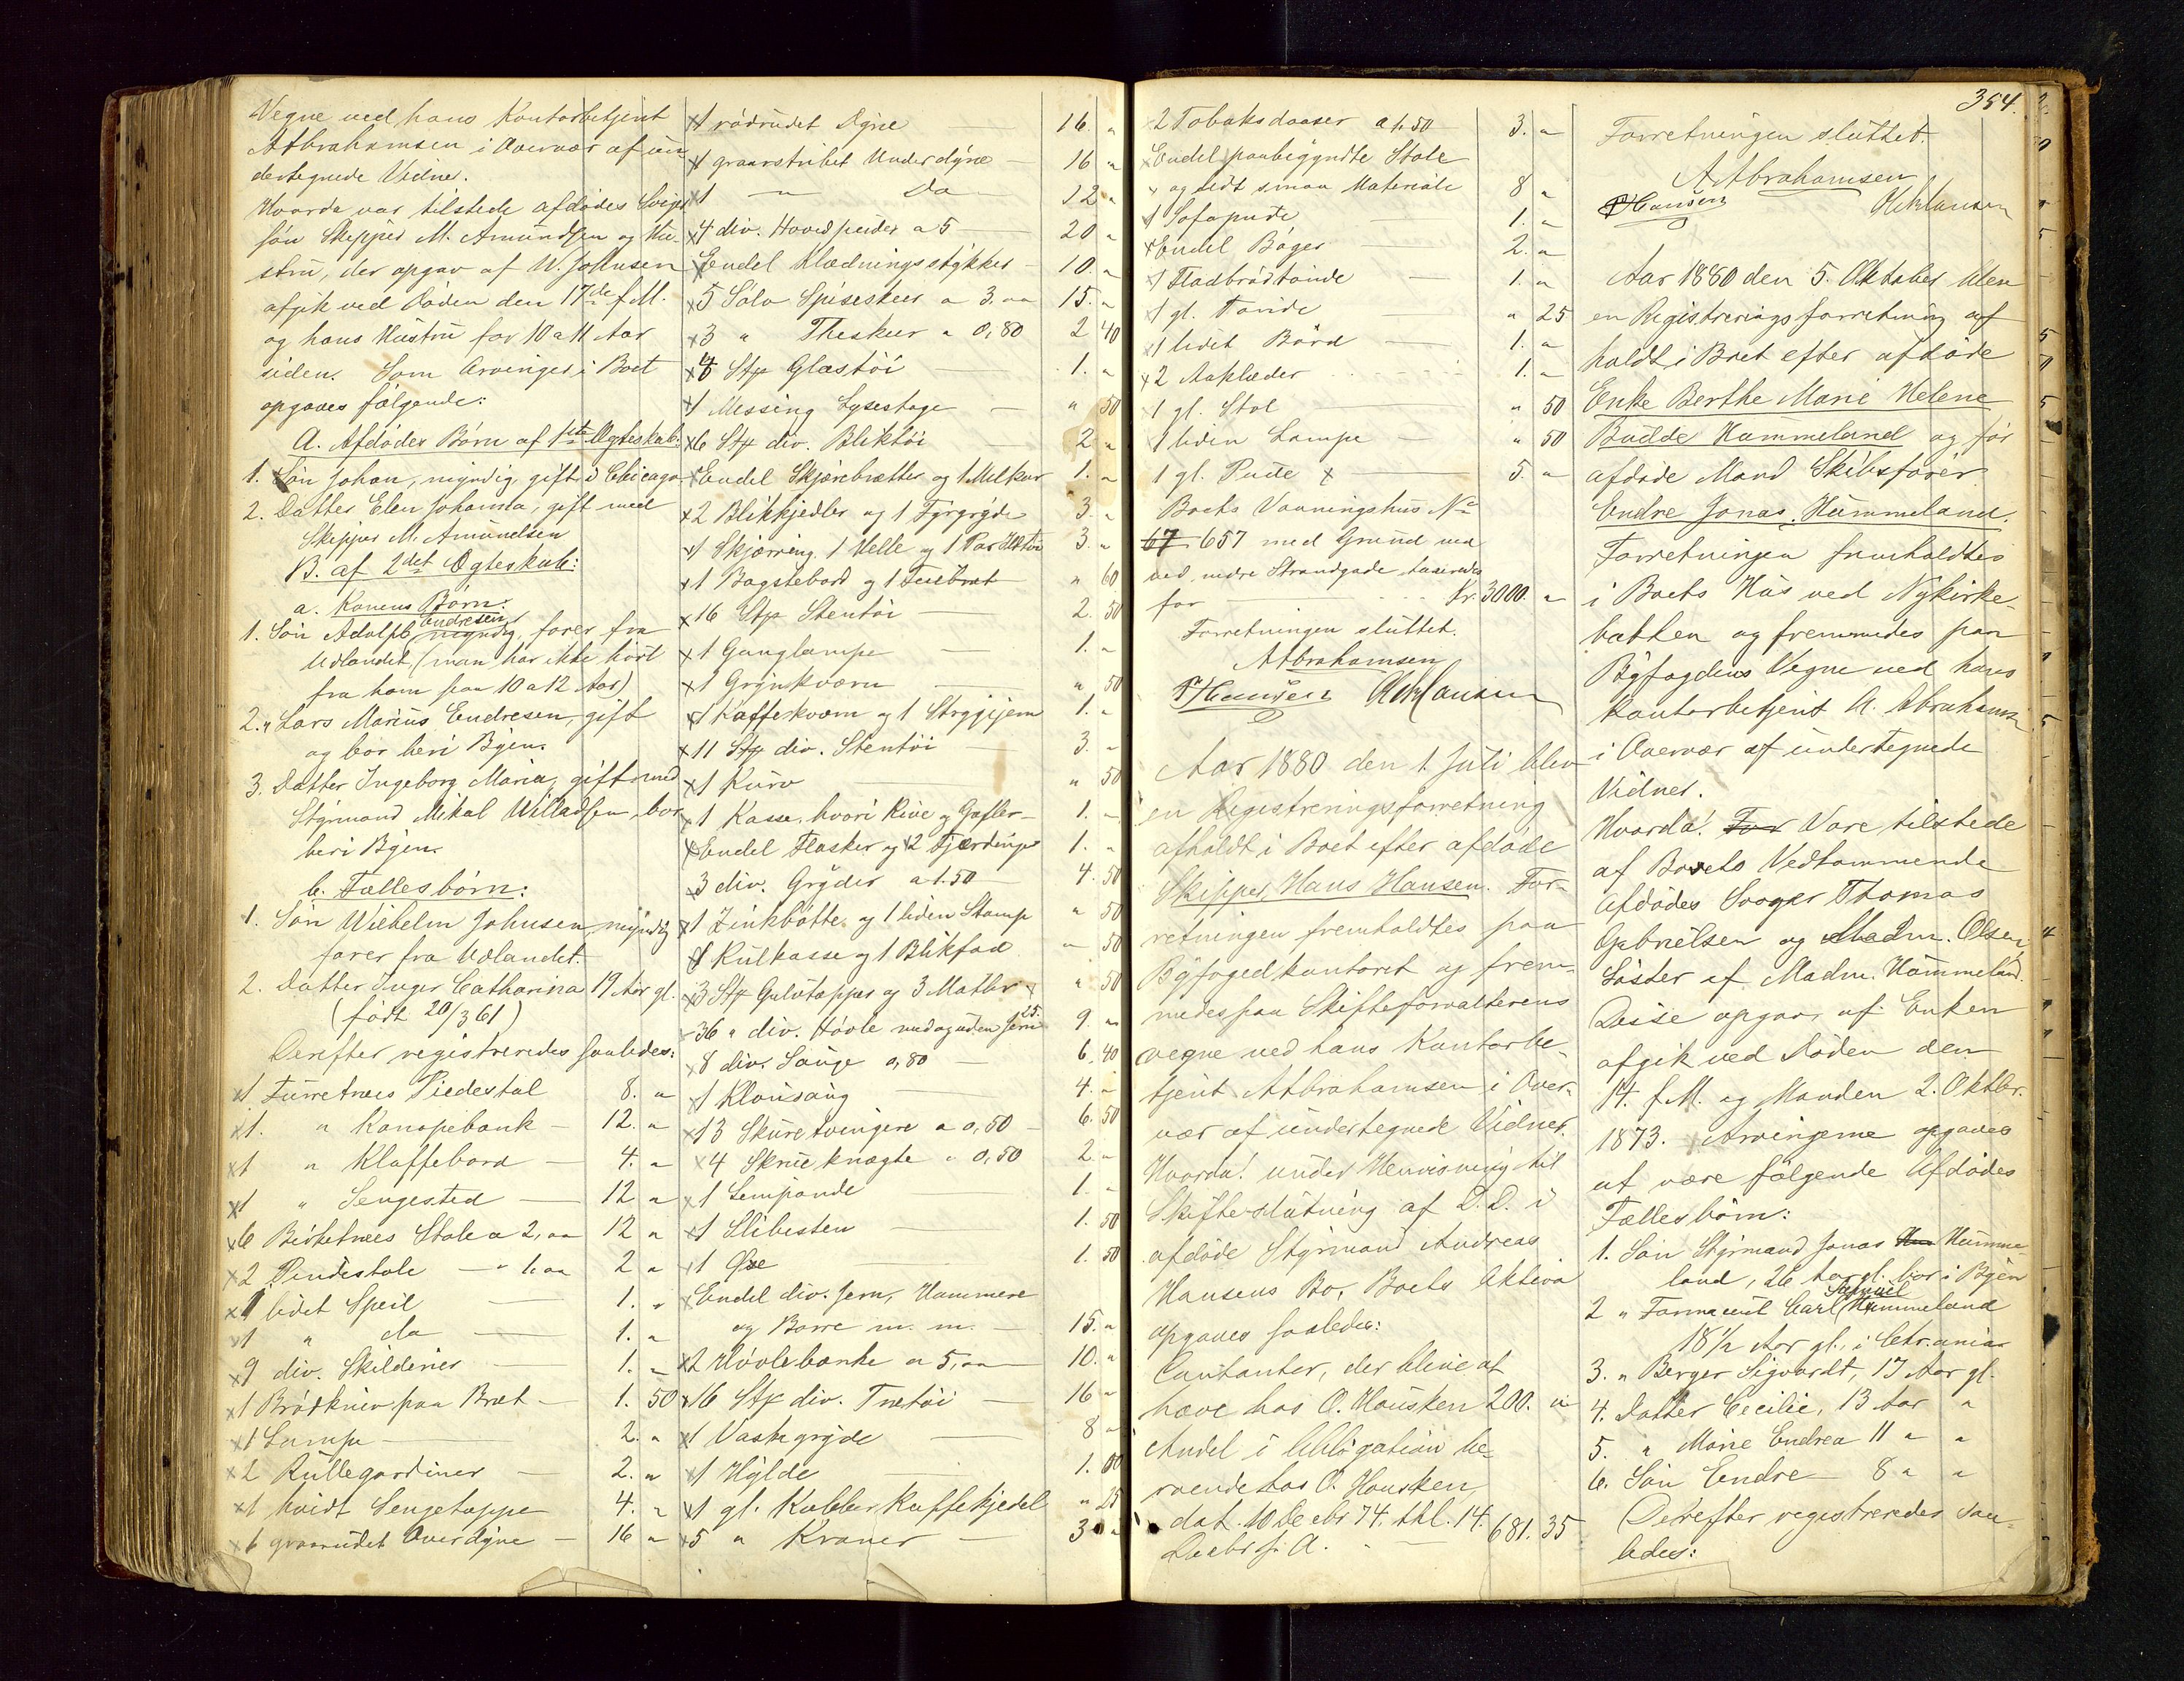 Vegne ved hans Kontorbetjent
A. Abrahamsen i Overvær af un-
dertegnede Vidner.
Hvorda var tilstede afdødes Sviger-
søn Skipper M. Amundsen og Hu-
stru, der opgav at W. Johnsen
afgik ved Døden den 17de f.M.
og hans Hustru for 10 a 11 Aar
siden. Som Arvinger i Boet
opgaves følgende:
A. Afdødes Børn af 1ste Ægteskab.
1. Søn Johan, myndig, gift i Chicago
2. Datter Elen Johanna, gift med
Skipper M. Amundsen
B. af 2det Ægteskab:
a. Konens Børn:
1. Søn Adolph Andresen, myndig, farer fra
Udlandet (man har ikke hørt
fra ham paa 10 a 12 Aar)
2. " Lars Marius Endresen, gift
og bor heri Byen.
3. Datter Ingeborg Maria, gift med
Styrmand Mikal Willadsen, bor
heri Byen.
b. Fællesbørn:
1. Søn Wilhelm Johnsen, myndig
farer fra Udlandet.
2. Datter Inger Catharina 19 Aar gl.
(født 20/3 61)
Derefter registreredes saaledes:
x1 Furretræs Piedestal 8. "
x1. " Kanapebænk - 12. "
x1 " Klaffebord - 4. "
x1 " Sengested - 12 "
x6 Birketræes Stole a 2, " 12 "
x2 Pindestole - " 1. " 2 "
x1 lidet Speil - 1. "
x1 " do - 1. "
x9 div. Skilderier - 1. "
x1 Brødkniv paa Bræt - 1. 50
x1 Lampe - 2. "
x2 Rullegardiner - 2. "
x1 hvidt Sengetæppe 4. "
x6 graarudet Overdyne - 16 "
x1 rødrudet Dyne - 16. "
x1 graastribet Underdyne - 16 "
x1 - " Do - 12 "
x4 div. Hovedpuder a 5 - 20 "
xEndel Klædningsstykker - 10. "
x5 Sølv Spiseskeer a 3. " 15. "
x3 " Theskeer " 0,80 2 40
x8 Stk Glastøi - 1. "
x1 Messing Lysestage - " 50
x6 Stk div. Bliktøi - 2 "
xEndel Skjærebrætter og 1 Melkar 1. "
x2 Blikkjedler og 1 Fyrgryde 3. "
x1 Skjærring, 1 Helle og 1 Par 3. "
x1 Bagstebord og 1 bræt - " 60
x16 Stk Stentøi - 2. 50
x1 Ganglampe - 1. "
x1 Grynkværn - " 50
x1 Kaffekværn og 1 Strygejern 1. "
x11 Stk div. Stentøi - 3. "
x1 Kurv - " 50
x1 Kasse, hvori Knive og Gafler - 1. "
xEndel Flasker og 2 Fjerdinger 1. "
x3 div. Gryder a 1.50 - 4. 50
x1 Zinkbøtte og 1 liden Stamp " 50
x1 Kulkasse og 1 Blikfad " 50
x3 Stk Gulvtæpper og 3 Matter x " 50
x36 " div. Høvle med og uden Jern 25. 9. "
x8 div. Sauge 0,80 - 6. 40
x1 Klovsaug - 4. "
x13 Skruetvingere a 0,50 - 6. 50
x4 Skrueknægte " 0,50 2. "
x1 Limpande - 1. "
x1 Slibesten - 1. 50
x1 Øxe - 1. 50
xEndel div. Jern, Hammere
og Borre m. m. - 15. "
x2 Høvlebænke a 5, " 10. "
x16 Stk div. Trætøi - 16 "
x1 Vaskegryde - 8 "
x1 Hylde - 1. 00
x1 gl. Kobber Kaffekjedel " 25
x5 " Kraner - 3 "
2 Tobaksdaaser a 1,50 3. "
xEndel paabegyndte Stole
" og lidt smaa Materiale 8 "
x1 Sofapude 1. "
xEndel Bøger - 2. "
x1 Fladbrødtønde - 1. "
x1 gl. Tønde " 25
x1 lidet Bord - 1. "
x2 Aaklæder 1. "
1 gl. Stol - " 50
1 liden Lampe - " 50
1 gl. Pude x - 5. "
Boets Vaaningshus No
67 657 med Grund ved
ved nedre Strandgade taxeredes
for Kr. 3000. "
Forretningen sluttet.
A Abrahamsen
P Hansen
Aar 1880 den 1 Juli blev
en Registreringsforretning
afholdt i Boet efter afdøde
Skipper Hans Hansen. For-
retningen fremholdtes paa
Byfogedkontoret og frem-
medes paa Skifteforvalterens
vegne ved hans Kontorbe-
tjent A Abrahamsen i Over-
vær af undertegnede Vidner.
Hvorda! under Henvisning til
Skifteslutning af D.D. i
afdøde Styrmand Andreas
Hansens Bo, Boets Aktiva
opgaves saaledes:
Contanter, der blive at
hæve hos O. Housken 200. "
Andel i Obligation be-
roende hos O. Housken,
dat. 10 Decbr 74. thl. 14.
Decbr A. - 681. 35
354.
Forretningen sluttet.
A Abrahamsen
P Hansen
Aar 1880 den 5. Oktober blev
en Registreringsforretning af
holdt i Boet efter afdøde
Enke Berthe Marie Helene
Budde Hummeland og før
afdøde Mand Skibsfører
Endre Jonas Hummeland.
Forretningen fremholdtes
i Boets Hus ved Nykirke-
bakken og fremmedes paa
Byfogdens Vegne ved hans
Kontorbetjent A. Abrahamsen
i Overvær af undertegnede
Vidner.
Hvorda! For Vare tilstede
af Boets Vedkommende
Afdødes Svoger Thomas
Gabrielsen og Madm. Olsen,
Søster af Madm. Hummeland.
Disse opgav, at Enken
afgik ved Døden den
14. f.M. og Manden 2. Oktbr.
1873. Arvingerne opgaves
at være følgende Afdødes
Fællesbørn:
1. Søn Styrmand Jonas Hu Humme-
land, 26 Aar gl. bor i Byen
2 " Farmaceut Carl Samuel Hummeland
18 1/2 Aar gl., i Chr.ania
3. " Berger Sigvardt, 17 Aar gl.
4. Datter Cecilie, 13 Aar "
5. " Marie Endrea 11 " "
6. Søn Endre - 8 " "
Derefter registreredes saa-
ledes: